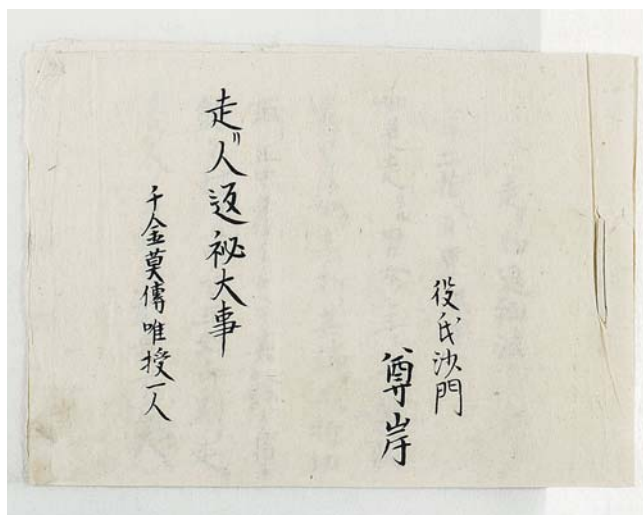 役氏沙門
尊岸
走リ人返秘大事
千金莫傳唯授一人